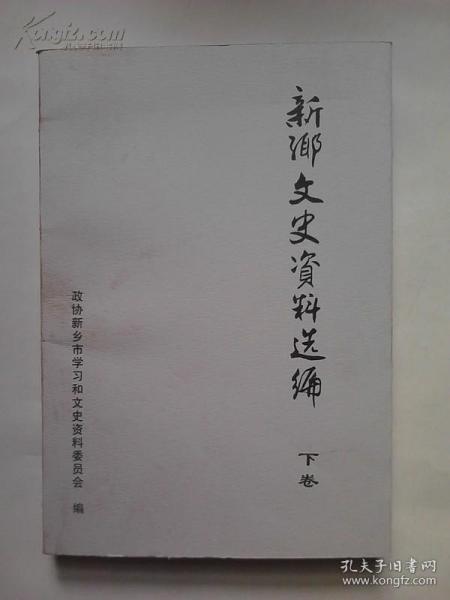 新鄉文史資料选编
下卷
政协新乡市学习和文史资料委员会 编
Kongfz.com
孔夫子旧书网
www.kongfz.com